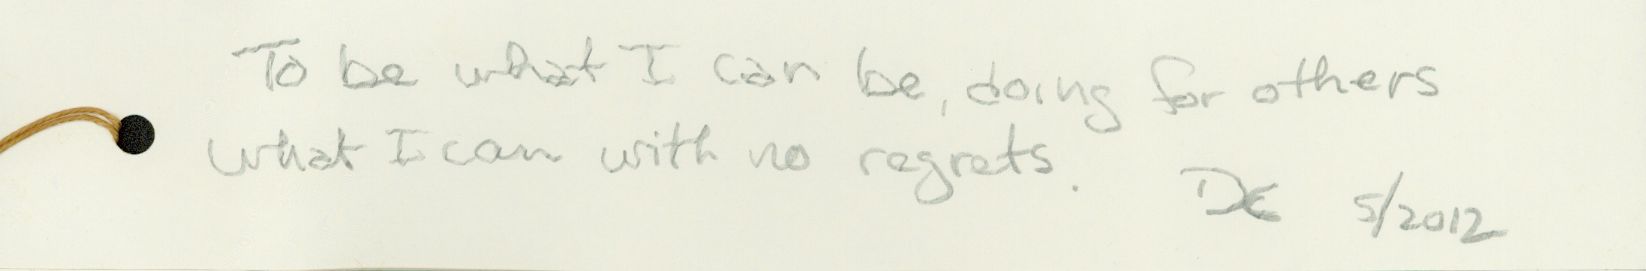 To be what I can be, doing for others
what I can with no regrets. DC 5/2012